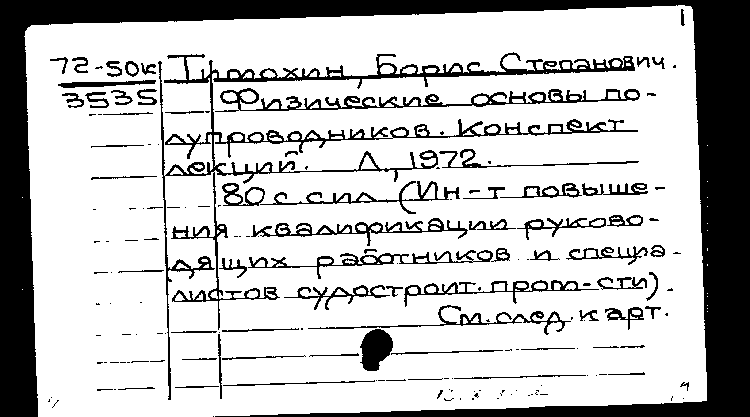 72-50к Тимохин, Борис Степанович.
3535 Физические основы по-
лупроводников. Конспект
лекций. Л., 1972.
80 с с ил (Ин-т повыше-
ния квалификации руково-
дящих работников и специа-
листов судостроит. пром-сти).
См. след. карт.